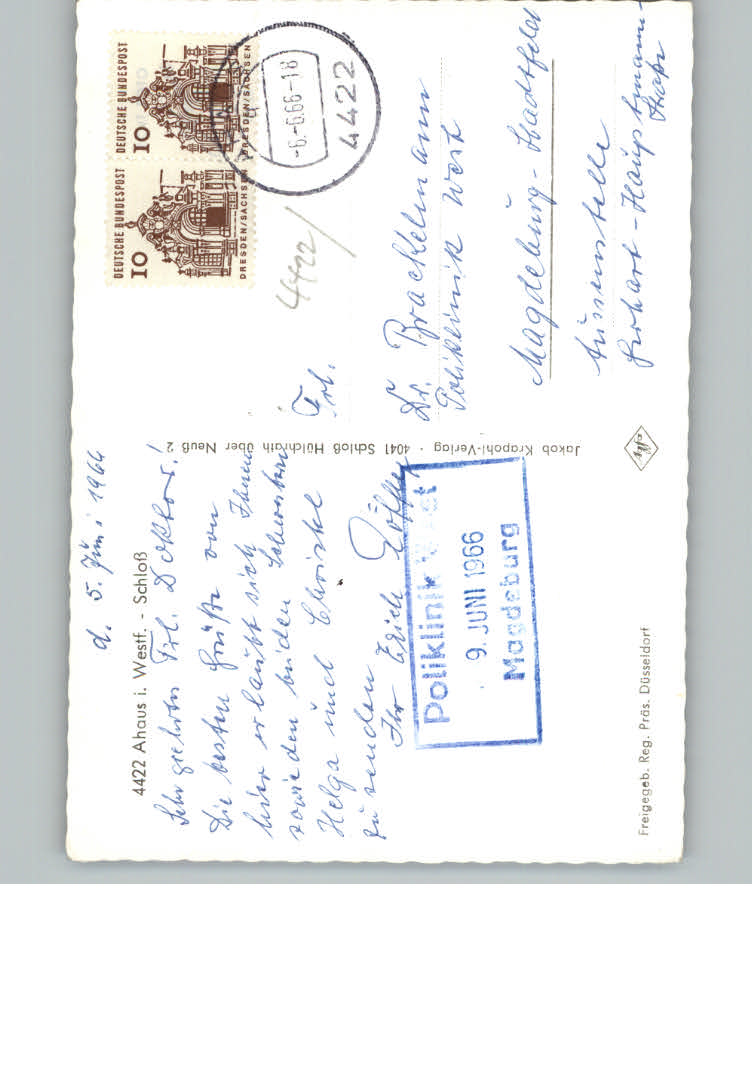 d. 5. Juni 1966
4422 Ahaus i. Westf. - Schloß
Sehr geehrtes Frl. Doktor!
Die besten Grüße von
hier erlaubt sich Ihnen
sowie den beiden Schwestern
Helga und Christel
zu senden
Ihr Erich
Poliklinik West
9. JUNI 1966
Magdeburg
Freigegeb. Reg. Präs. Düsseldorf
Jakob Krapohl-Verlag · 4041 Schloß Hülchrath über Neuß 2
Agfa
DEUTSCHE BUNDESPOST
10
DRESDEN/SACHSEN
DEUTSCHE BUNDESPOST
10
DRESDEN/SACHSEN
-6.-6.66-18
4422
4422/
Frl.
Dr. Brackelmann
Poliklinik West
Magdeburg-Stadtfeld
Aussenstelle
Gerhart-Hauptmann-
Straße